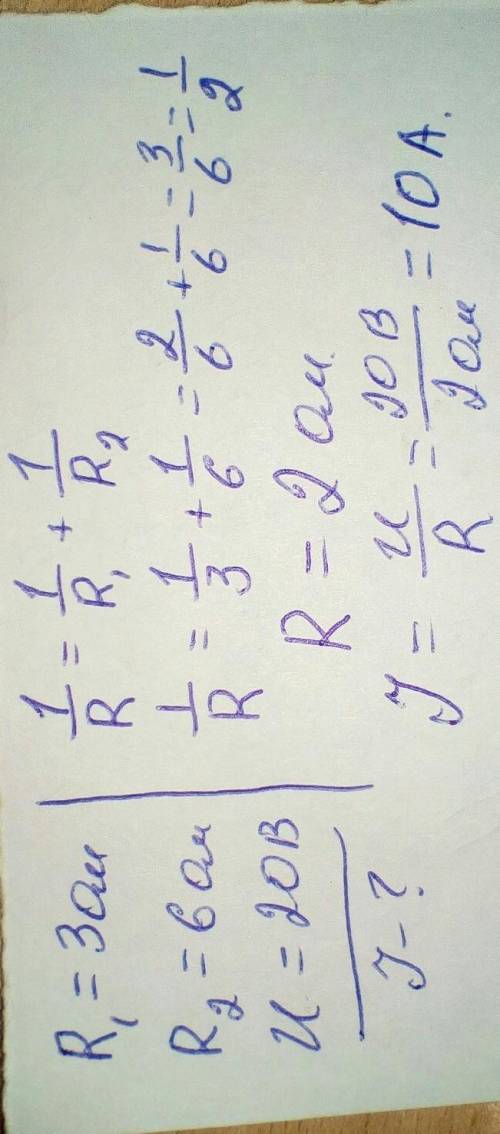 R₁ = 3 Ом
R₂ = 6 Ом
U = 20 В
J - ?
1/R = 1/R₁ + 1/R₂
1/R = 1/3 + 1/6 = 2/6 + 1/6 = 3/6 = 1/2
R = 2 Ом.
J = U/R = 20 В/2 Ом = 10 А.